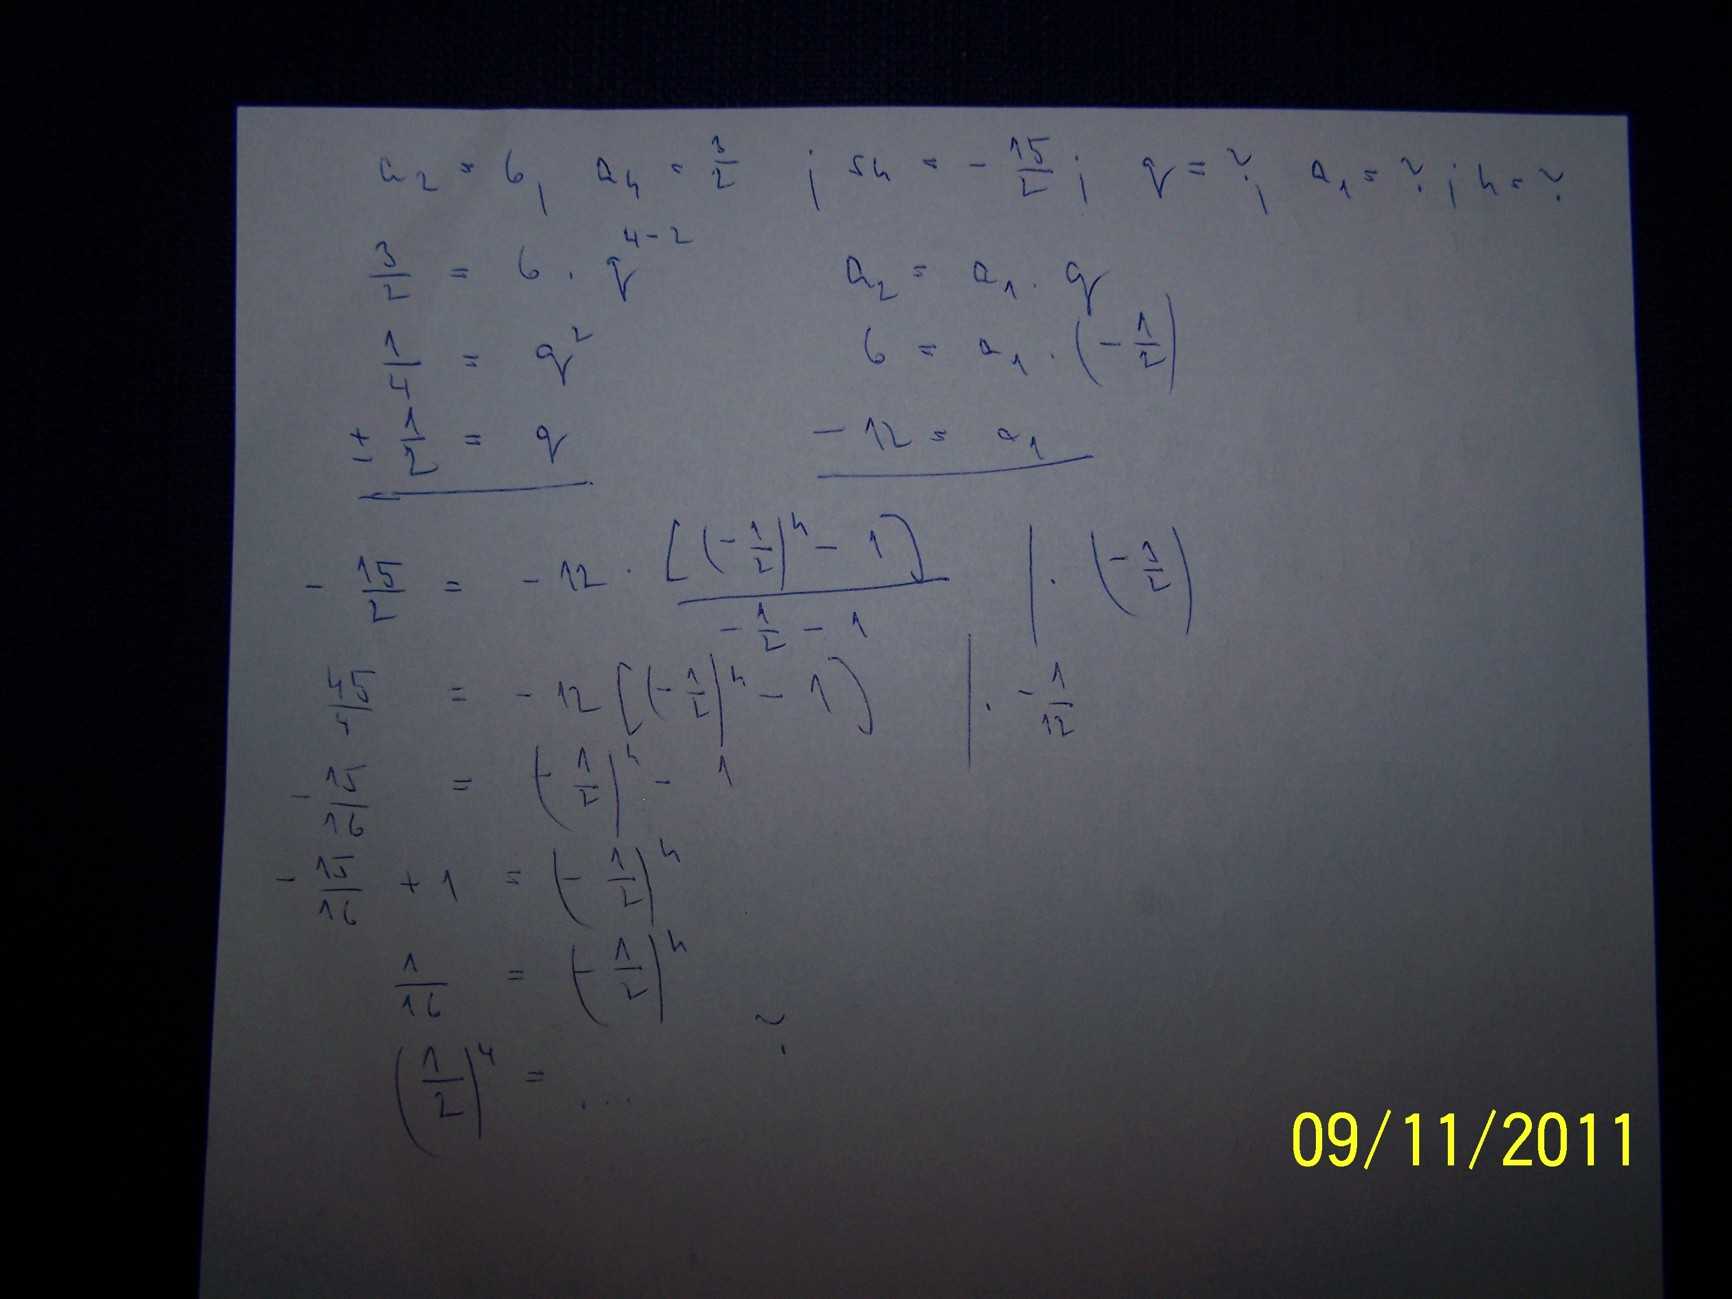 a₂ = 6, a₄ = 3/2 ; sn = - 15/2 ; q = ?, a₁ = ? ; n = ?
3/2 = 6 · q⁴⁻² a₂ = a₁ · q
1/4 = q² 6 = a₁ · (-1/2)
± 1/2 = q - 12 = a₁
- 15/2 = - 12 · [(-1/2)ⁿ - 1] / (-1/2 - 1) | · (-3/2)
45/4 = - 12 [(-1/2)ⁿ - 1] | · - 1/12
- 15/16 = (-1/2)ⁿ - 1
- 15/16 + 1 = (-1/2)ⁿ
1/16 = (-1/2)ⁿ
(1/2)⁴ = ... ?
09/11/2011